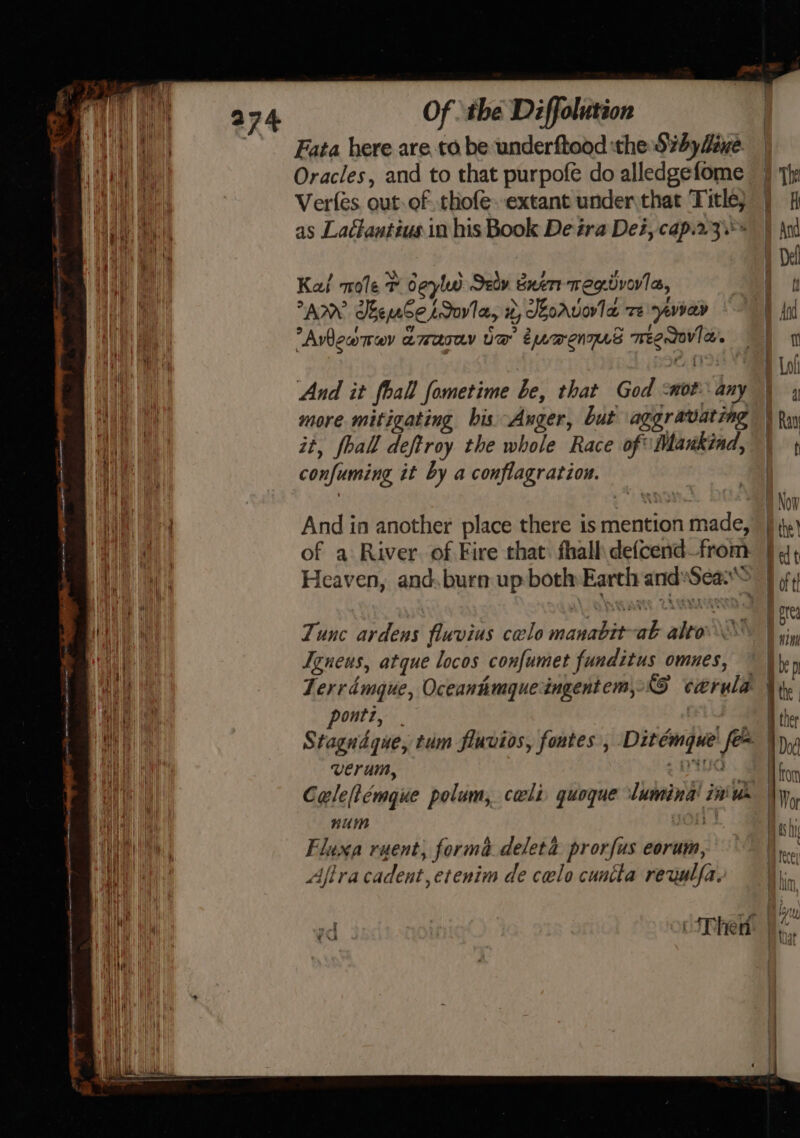 274 Of the Diſſolution
Fata here are to be underſtood the Sibylline
Oracles, and to that purpoſe do alledge ſome
Verſes out of thoſe extant under that Title,
as Lactantius in his Book De ira Dei, cap. 23.
Καί ποτε τ̃ ὀργίω Θεὸν ἐκέτι πραΰνοντα,
Ἀλλ' ἐξεμβείθοντα, ϗ ἐξολύοντά τε γένναν
Ἀνθρώπων ἅπασαν ὑπ' ἐμπρησμȣ͂ πέρθοντα.
And it ſhall ſometime be, that God not any
more mitigating his Anger, but aggravating
it, ſhall deſtroy the whole Race of Mankind,
conſuming it by a conflagration.
And in another place there is mention made,
of a River of Fire that ſhall deſcend from
Heaven, and burn up both Earth and Sea.
Tunc ardens fluvius cælo manabit ab alto
Igneus, atque locos conſumet funditus omnes,
Terrámque, Oceanúmque ingentem, & cærula
ponti,
Stagnáque, tum fluvios, fontes, Ditémque ſe-
verum,
Cæleſtémque polum, cæli quoque lumina in u-
num
Fluxa ruent, formâ deletâ prorſus eorum,
Aſtra cadent, etenim de cælo cuncta revulſa.
Then